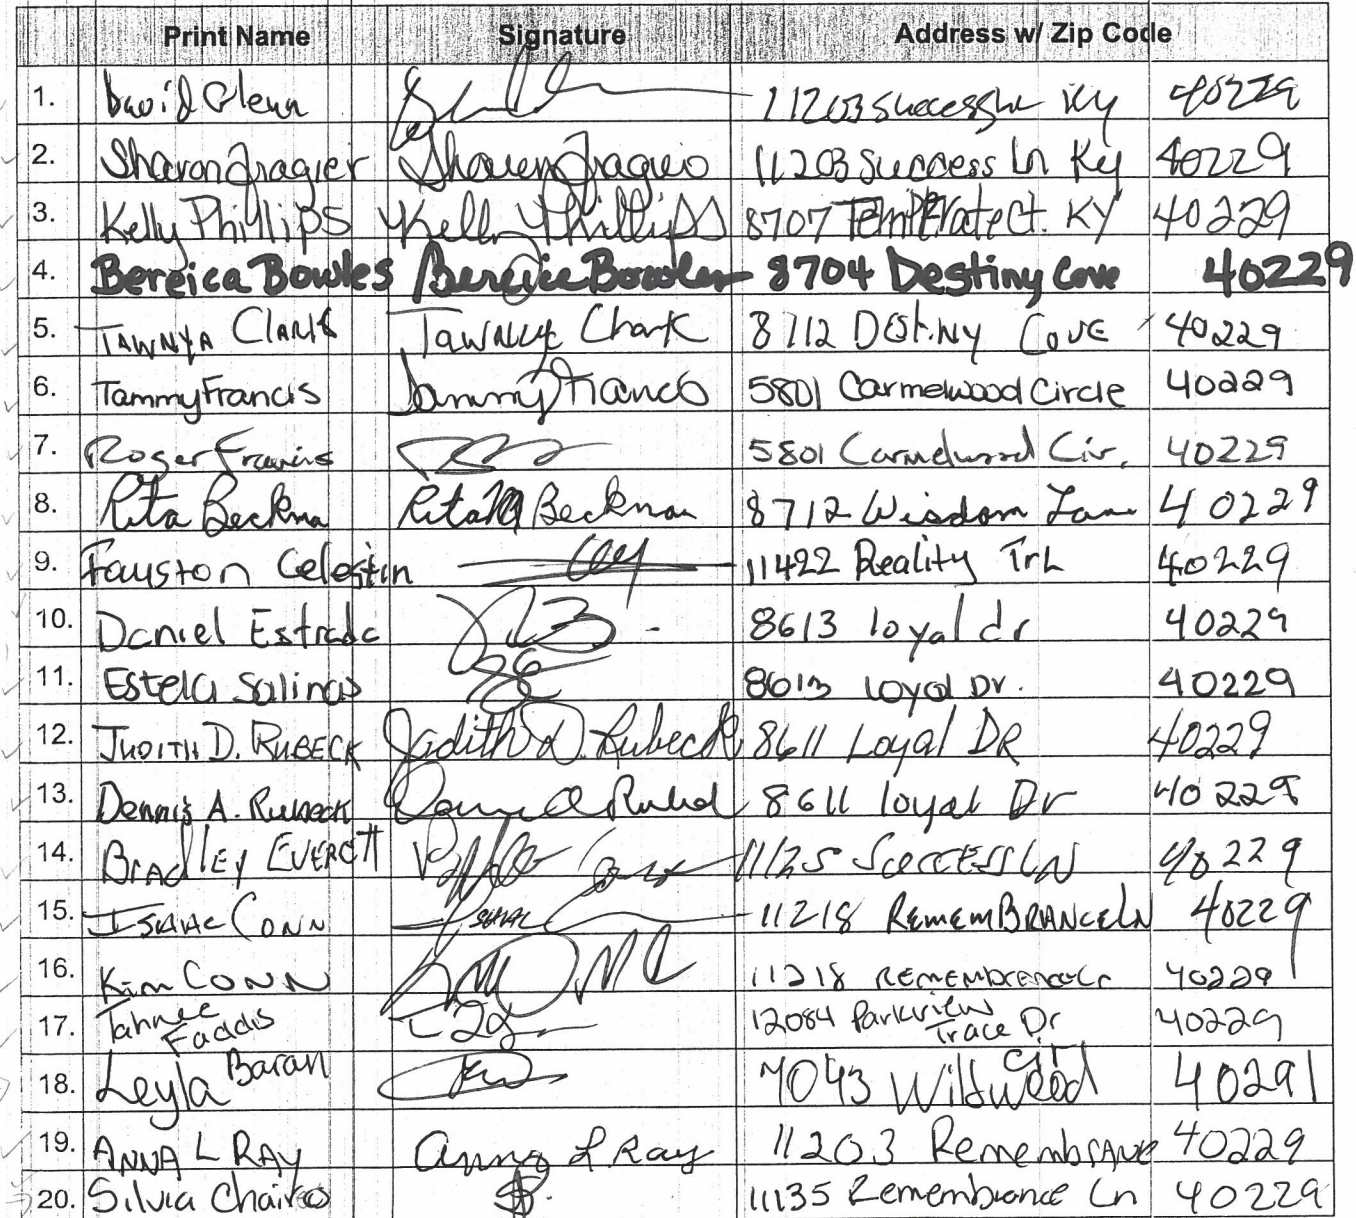 Print Name Signature Address w/ Zip Code
1. David Glenn 11203 Success Ln Ky 40229
2. Sharon Fragier Sharon Fragier 11203 Success Ln Ky 40229
3. Kelly Phillips Kelly Phillips 8707 Temperate Ct. KY 40229
4. Bereica Bowles Bereica Bowles 8704 Destiny Cove 40229
5. TAWNYA CLARK Tawnya Clark 8712 DEStiNy COVE 40229
6. Tammy Francis Tammy Francis 5801 Carmelwood Circle 40229
7. Roger Francis 5801 Carmelwood Cir. 40229
8. Rita Beckman Rita M Beckman 8712 Wisdom Lane 40229
9. Fauston Celestin 11422 Reality TrL 40229
10. Daniel Estrada 8613 loyal dr 40229
11. Estela Salinas 8613 Loyal Dr. 40229
12. JUDITH D. RUBECK Judith D. Rubeck 8611 Loyal DR 40229
13. Dennis A. Rubeck 8611 loyal Dr 40229
14. BRADLEY EVERETT 11125 SUCCESS LN 40229
15. ISAAC CONN ISAAC 11218 REMEMBRANCE LN 40229
16. Kim CONN 11218 REMEMBRANCE Ln 40229
17. Tahnee Faddis 12084 Parkview Trace Dr 40229
18. Leyla Baran 7043 Wildwood CiT 40291
19. ANNA L RAY Anna L Ray 11203 Remembrance 40229
20. Silvia 11135 Remembrance Ln 40229